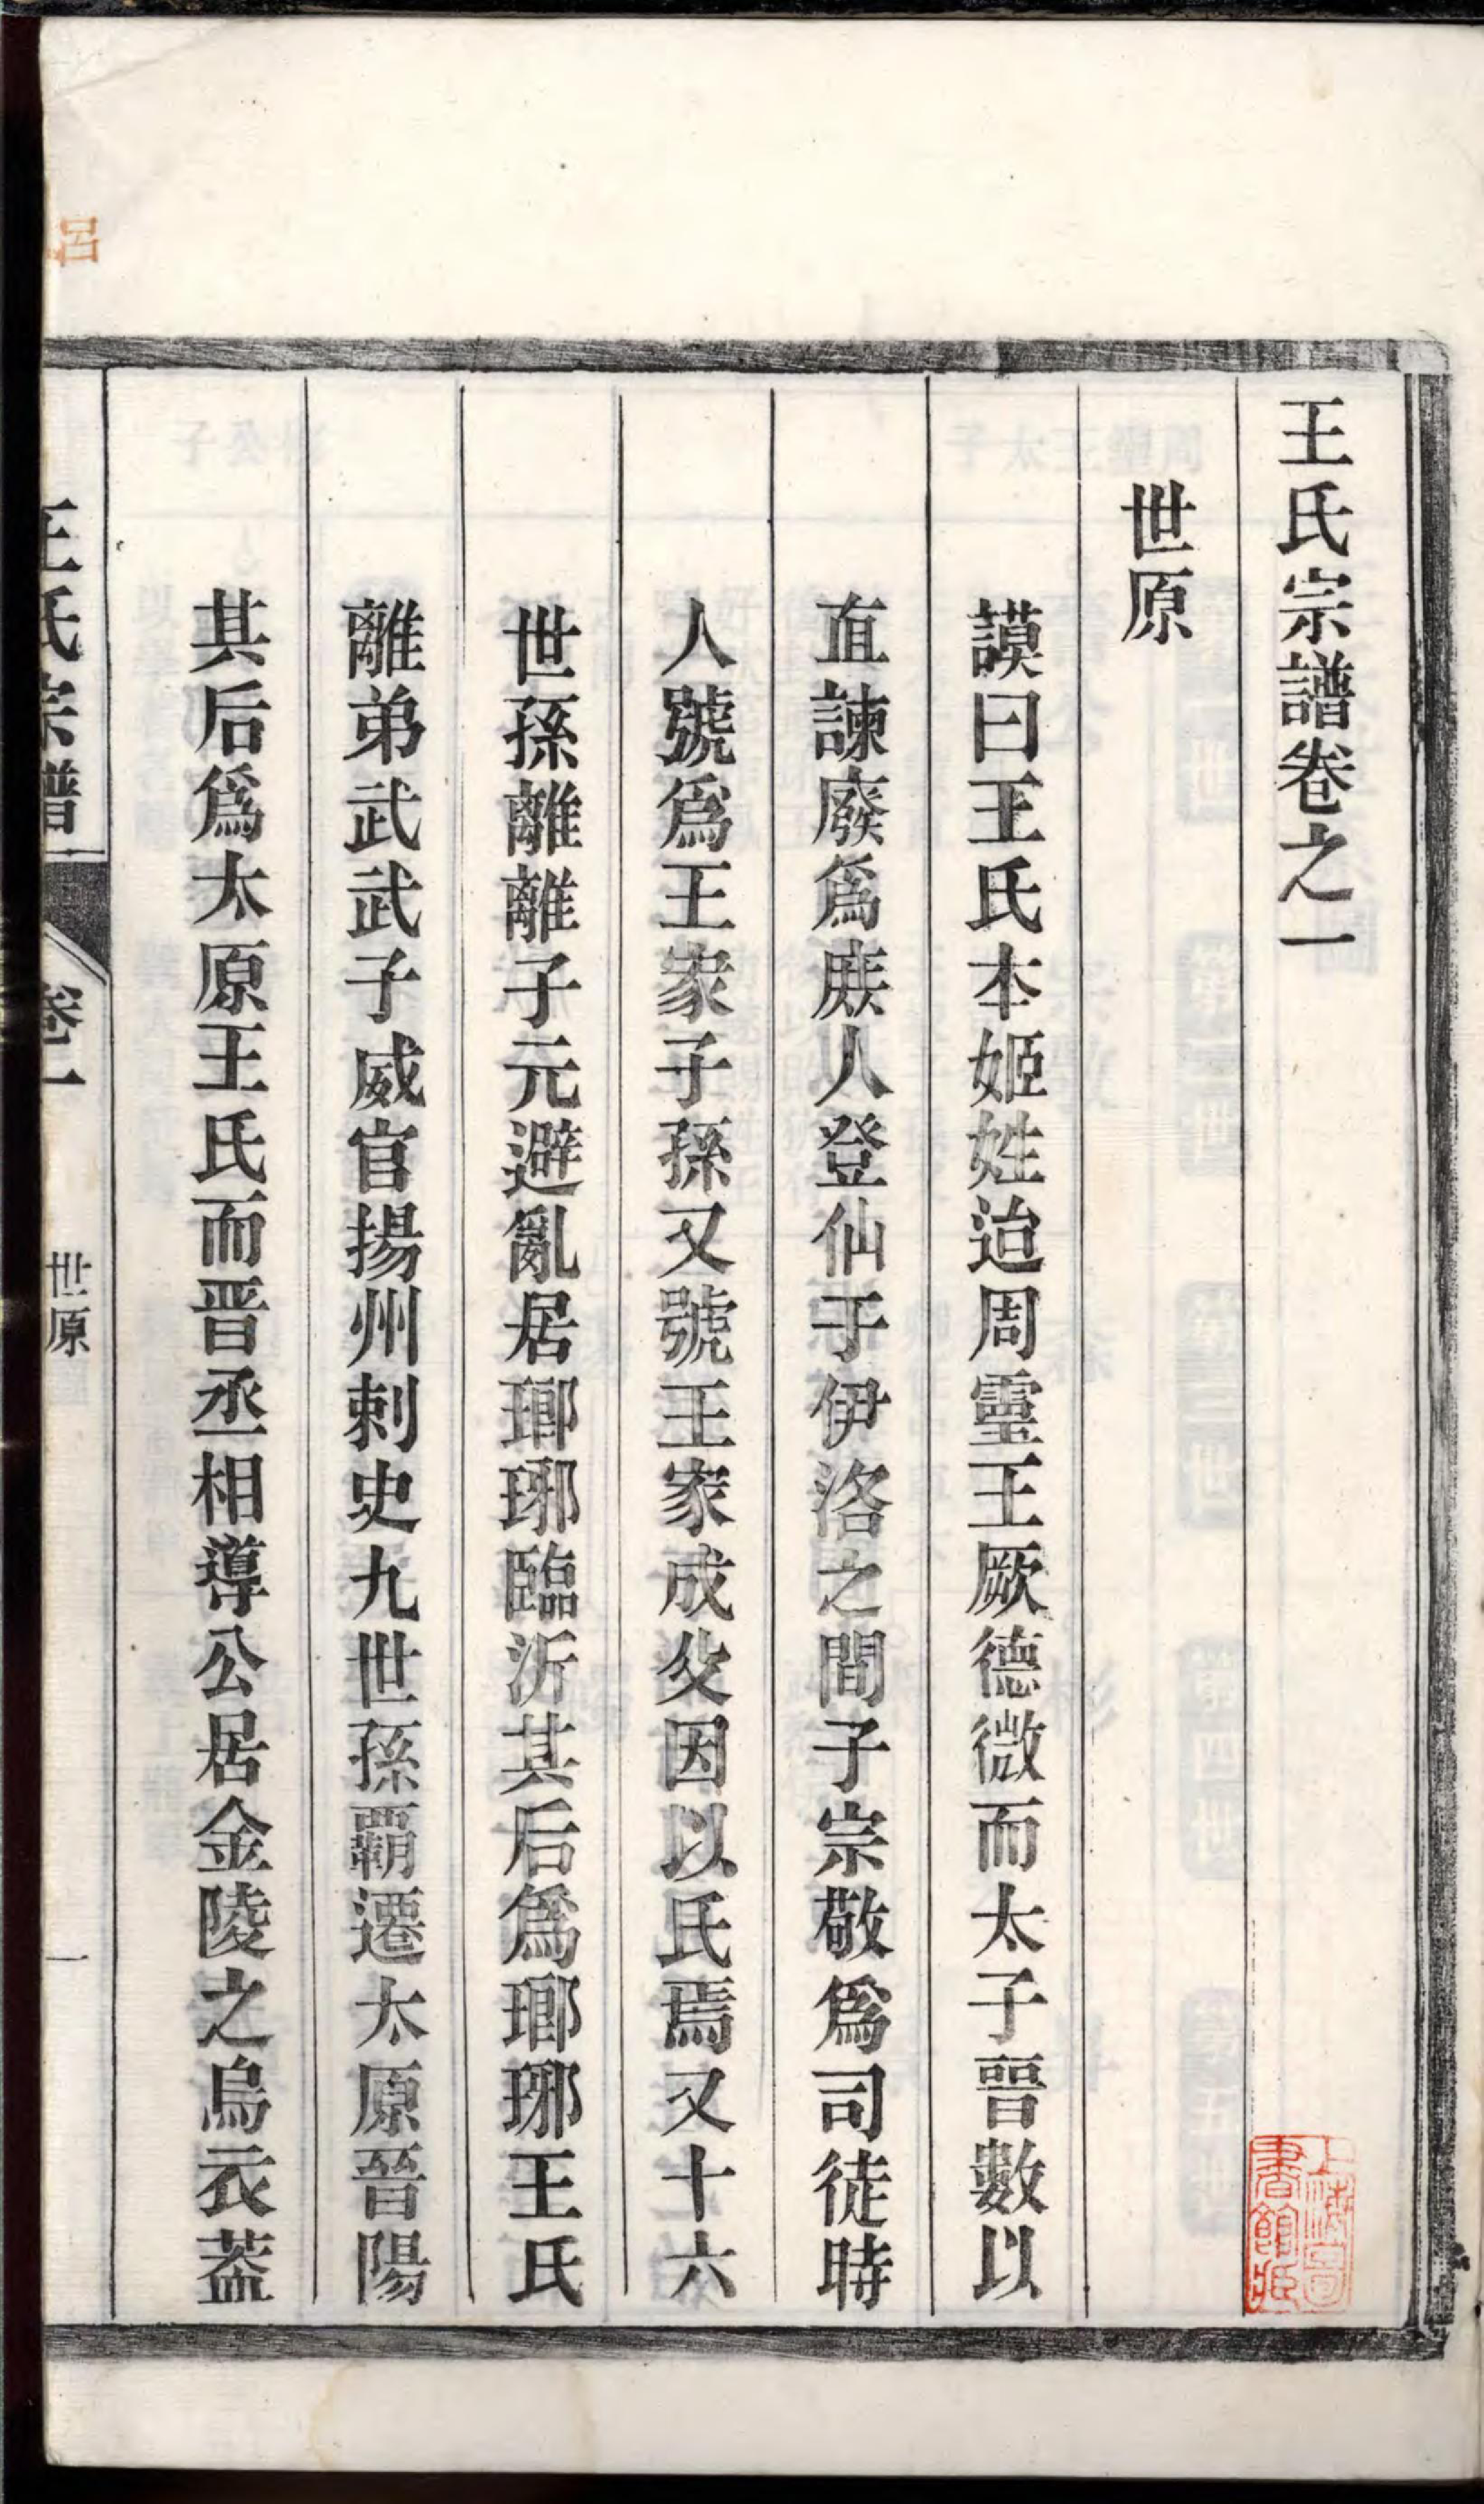 王氏宗譜卷之一
世原
謨曰王氏本姬姓迨周靈王厥德微而太子晉數以
直諫廢爲庶人登仙于伊洛之間子宗敬爲司徒時
人號爲王家子孫又號王家成父因以氏焉又十六
世孫離離子元避亂居瑯琊臨沂其后爲瑯琊王氏
離弟武武子威官揚州刺史九世孫覇遷太原晉陽
其后爲太原王氏而晋丞相導公居金陵之烏衣葢
王氏宗譜
卷一
世原
一
呂
上海圖
書館藏